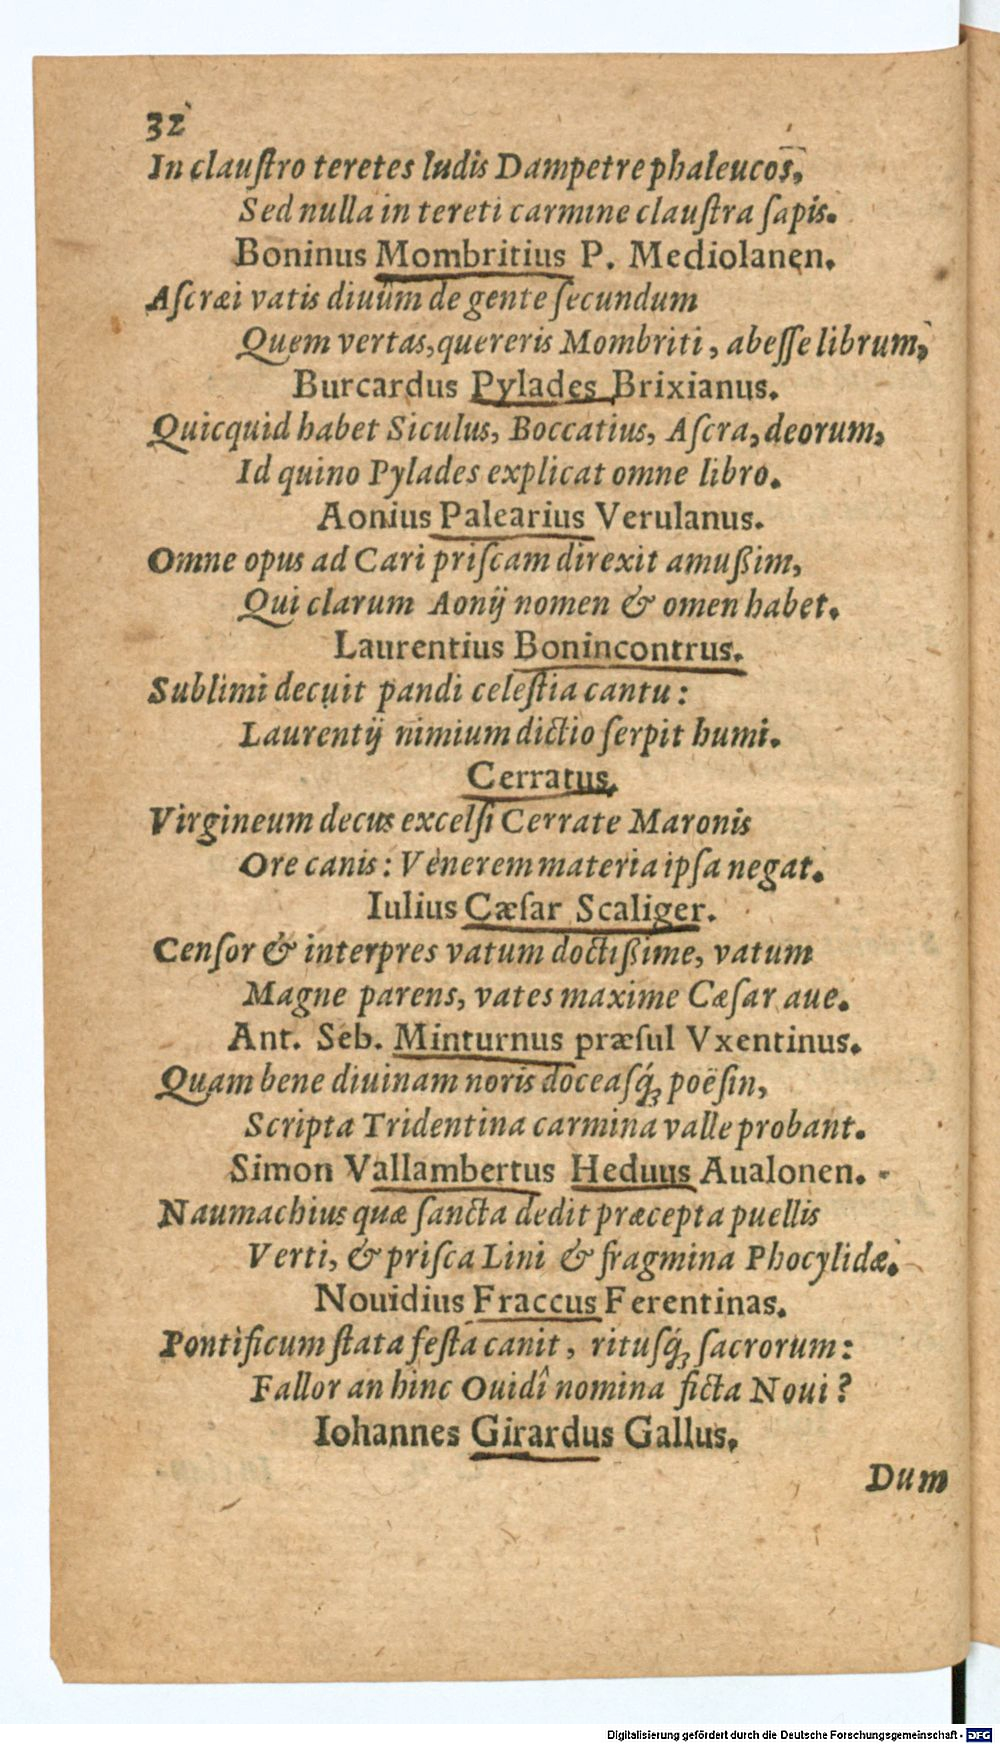 32
In clauſtro teretes ludis Dampetre phaleucos,
Sed nulla in tereti carmine clauſtra ſapis.
Boninus Mombritius P. Mediolanen.
Aſcræi vatis diuûm de gente ſecundum
Quem vertas, quereris Mombriti, abeſſe librum,
Burcardus Pylades Brixianus.
Quicquid habet Siculus, Boccatius, Aſcra, deorum,
Id quino Pylades explicat omne libro.
Aonius Palearius Verulanus.
Omne opus ad Cari priſcam direxit amußim,
Qui clarum Aonij nomen & omen habet.
Laurentius Bonincontrus.
Sublimi decuit pandi celeſtia cantu:
Laurentij nimium dictio ſerpit humi.
Cerratus.
Virgineum decus excelſi Cerrate Maronis
Ore canis: Venerem materia ipſa negat.
Iulius Cæſar Scaliger.
Cenſor & interpres vatum doctißime, vatum
Magne parens, vates maxime Cæſar aue.
Ant. Seb. Minturnus præſul Vxentinus.
Quam bene diuinam noris doceaſq́; poëſin,
Scripta Tridentina carmina valle probant.
Simon Vallambertus Heduus Aualonen.
Naumachius quæ ſancta dedit præcepta puellis
Verti, & priſca Lini & fragmina Phocylidæ.
Nouidius Fraccus Ferentinas.
Pontificum ſtata feſta canit, rituſq́; ſacrorum:
Fallor an hinc Ouidî nomina ficta Noui?
Iohannes Girardus Gallus.
Dum
Digitalisierung gefördert durch die Deutsche Forschungsgemeinschaft - DFG